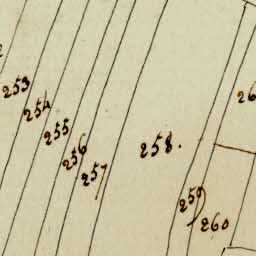 253
254
255
256
257
258.
259
260
26